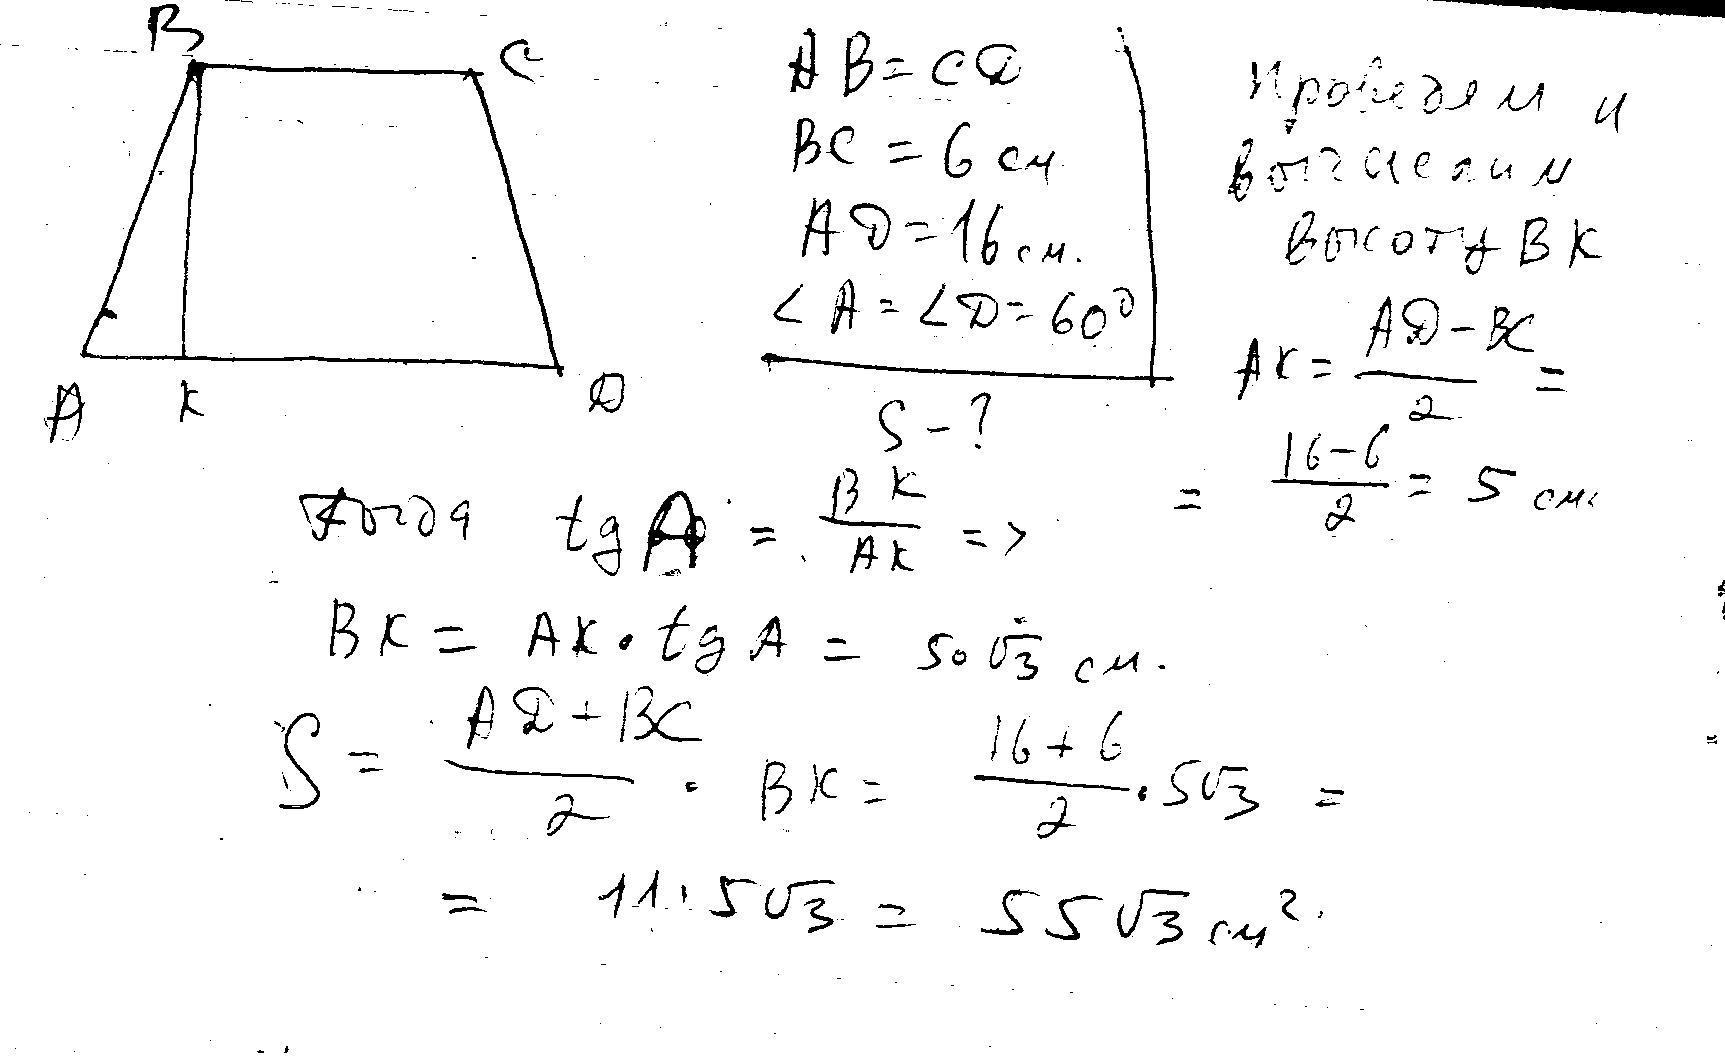 B C
A K D
AB = CD
BC = 6 см
AD = 16 см.
∠A = ∠D = 60°
S - ?
Проведем и
вычислим
высоту BK
AK = (AD - BC)/2 =
= (16 - 6)/2 = 5 см.
Тогда tg A = BK/AK =>
BK = AK • tg A = 5•√3 см.
S = (AD + BC)/2 • BK = (16 + 6)/2 • 5√3 =
= 11 • 5√3 = 55√3 см².